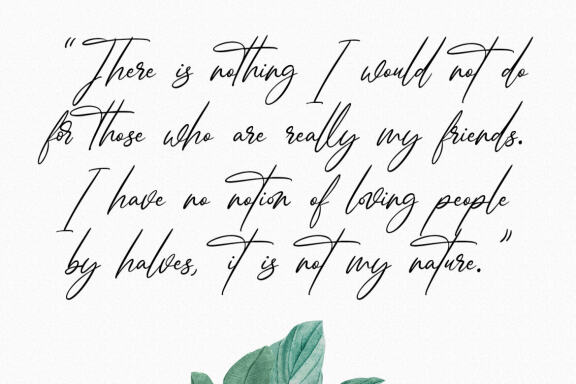 “There is nothing I would not do
for those who are really my friends.
I have no notion of loving people
by halves, it is not my nature.”